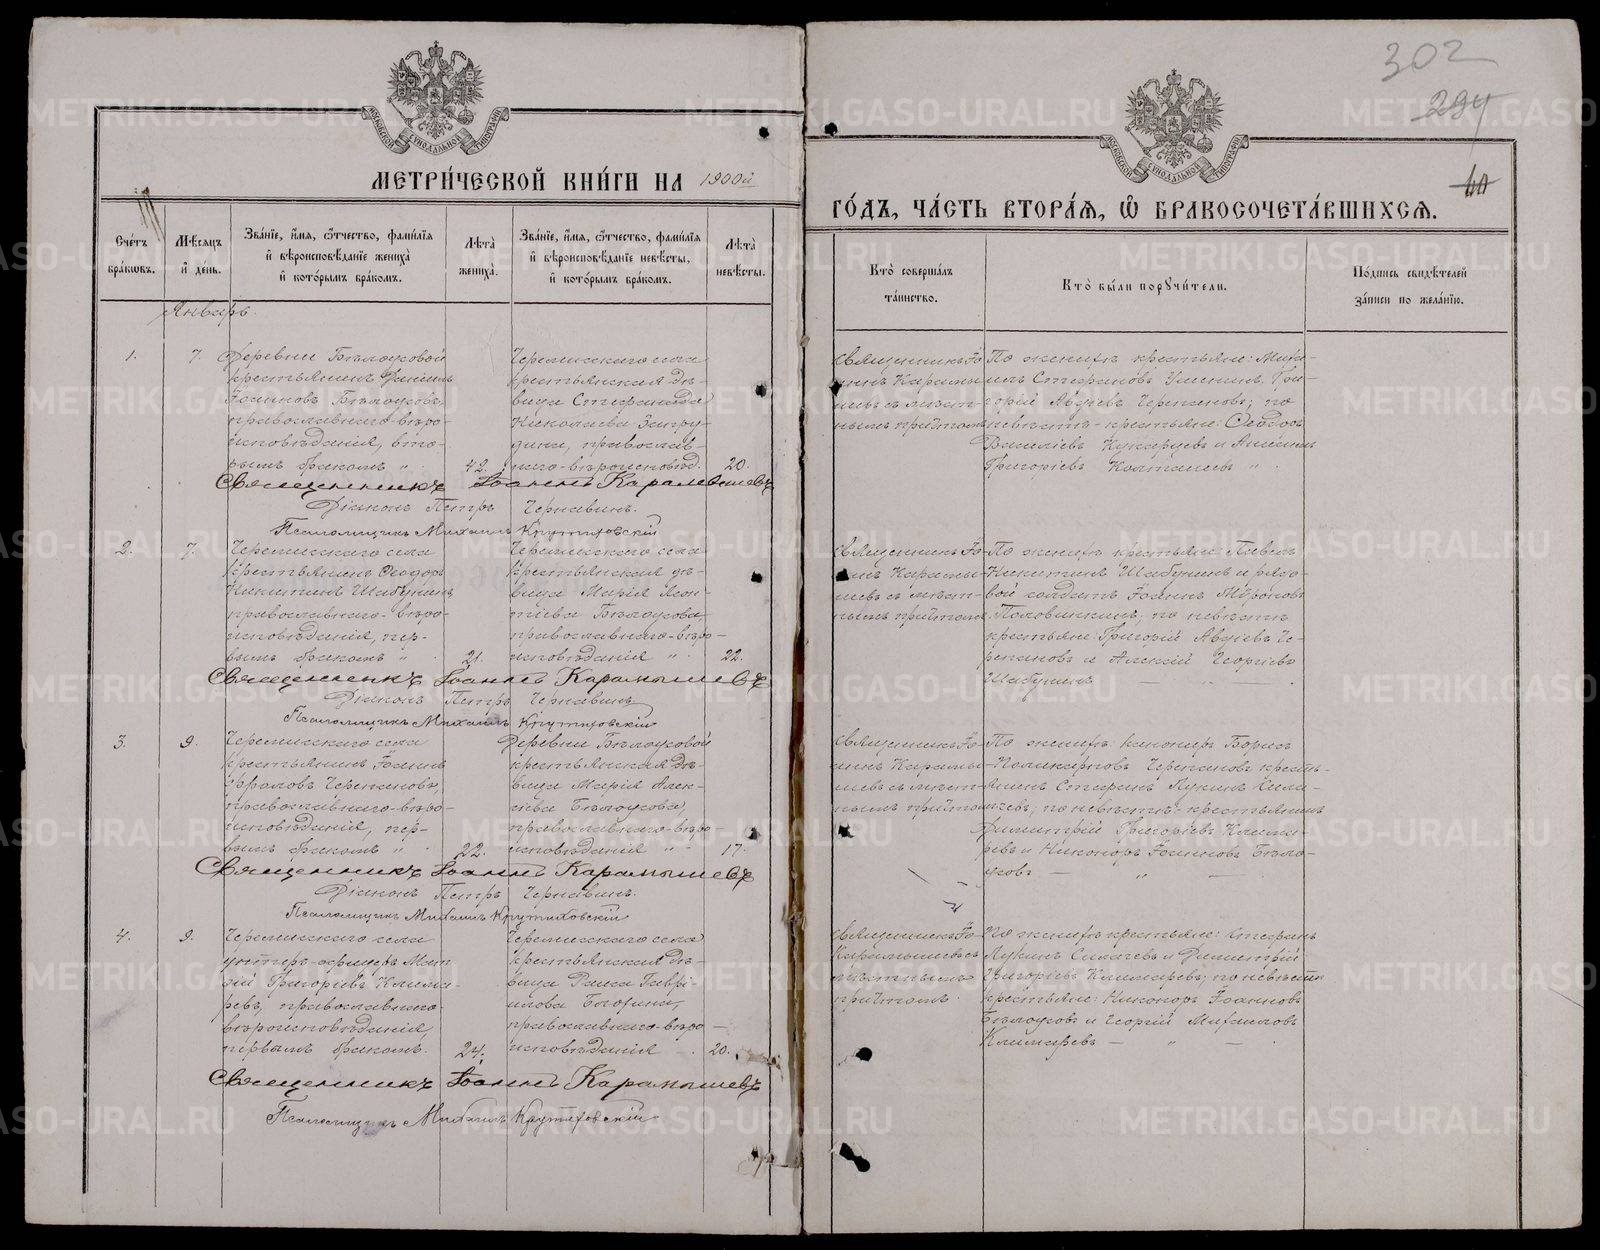 302
294
40
МОСКОВСКОЙ СѴНОДАЛЬНОЙ ТИПОГРАФІИ
МЕТРИ́ЧЕСКОЙ КНИ́ГИ НА 1900й
ГО́ДЪ, ЧА́СТЬ ВТОРА́Ѧ, Ѽ БРАКОСОЧЕТА́ВШИХСѦ.
Сче́тъ бра́кѡвъ.
Мѣ́сѧцъ и҆ де́нь.
Зва́нїе, и҆́мѧ, ѻ҆́тчество, фами́лїѧ и҆ вѣроисповѣ́данїе жениха̀ и҆ кото́рымъ бра́комъ.
Лѣта̀ жениха̀.
Зва́нїе, и҆́мѧ, ѻ҆́тчество, фами́лїѧ и҆ вѣроисповѣ́данїе невѣ́сты, и҆ кото́рымъ бра́комъ.
Лѣта̀ невѣ́сты.
Кто̀ соверша́лъ та́инство.
Кто̀ бы́ли порꙋчи́тели.
По́дпись свидѣ́телей за́писи по жела́нїю.
Январь.
1.
7.
Деревни Бѣлоусовой
крестьянинъ Даніилъ
Іоанновъ Бѣлоусовъ,
православнаго вѣро-
исповѣданія, вто-
рымъ бракомъ "
42.
Черемисскаго села
крестьянская дѣ-
вица Стефанида
Николаева Запру-
дина, православ-
наго вѣроисповѣд.
20.
Священникъ Іо-
аннъ Карамы-
шевъ съ мѣст-
нымъ причтомъ
По женихѣ крестьяне: Миха-
илъ Стефановъ Ушенинъ, Гри-
горій Авдіевъ Черепановъ; по
невѣстѣ - крестьяне: Ѳеодосъ
Василіевъ Кукарцевъ и Анисимъ
Григоріевъ Колташевъ "
Священникъ Іоаннъ Карамышевъ
Діаконъ Петръ Чернавинъ.
Псаломщикъ Михаилъ Крутиховскій
2.
7.
Черемисскаго села
крестьянинъ Ѳеодоръ
Никитинъ Шабунинъ
православнаго-вѣро-
исповѣданія, пер-
вымъ бракомъ "
21.
Черемисскаго села
крестьянская дѣ-
вица Марія Леон-
тіева Бѣлоусова,
православнаго-вѣро-
исповѣданія "
22.
Священникъ Іо-
аннъ Карамы-
шевъ съ мѣст-
нымъ причтомъ
По женихѣ крестьяне: Павелъ
Никитинъ Шабунинъ и рядо-
вой солдатъ Іоаннъ Мѵроновъ
Половинкинъ; по невѣстѣ
крестьяне: Григорій Авдіевъ Че-
репановъ и Алексій Георгіевъ
Шабунинъ
Священникъ Іоаннъ Карамышевъ
Діаконъ Петръ Чернавинъ
Псаломщикъ Михаилъ Крутиховскій
3.
9.
Черемисскаго села
крестьянинъ Іоаннъ
Черепановъ,
православнаго-вѣро-
исповѣданія, пер-
вымъ бракомъ "
22.
Деревни Бѣлоусовой
крестьянская дѣ-
вица Марія Алек-
сіева Бѣлоусова,
православнаго-вѣро-
исповѣданія "
17.
Священникъ Іо-
аннъ Карамы-
шевъ съ мѣст-
нымъ причтомъ
По женихѣ: канониръ Борисъ
Поликарповъ Черепановъ, кресть-
янинъ Стефанъ Лукинъ Сила-
чевъ; по невѣстѣ: крестьянинъ
Димитрій Григоріевъ Клима-
ревъ и Никоноръ Іоанновъ Бѣло-
усовъ
Священникъ Іоаннъ Карамышевъ
Діаконъ Петръ Чернавинъ.
Псаломщикъ Михаилъ Крутиховскій
4.
9.
Черемисскаго села
унтеръ-офицеръ Мат-
ѳій Григоріевъ Клима-
ревъ, православнаго-
вѣроисповѣданія,
первымъ бракомъ.
24.
Черемисскаго села
крестьянская дѣ-
вица Раиса Гаврі-
илова
православнаго-вѣро-
исповѣданія
20.
Священникъ Іо.
Карамышевъ съ
мѣстнымъ
причтомъ
По женихѣ крестьяне: Стефанъ
Лукинъ Силачевъ и Димитрій
Григоріевъ Климаревъ; по невѣстѣ
крестьяне: Никоноръ Іоанновъ
Бѣлоусовъ и Георгій Михаиловъ
Климаревъ
Священникъ Іоаннъ Карамышевъ
Псаломщикъ Михаилъ Крутиховскій
METRIKI.GASO-URAL.RU